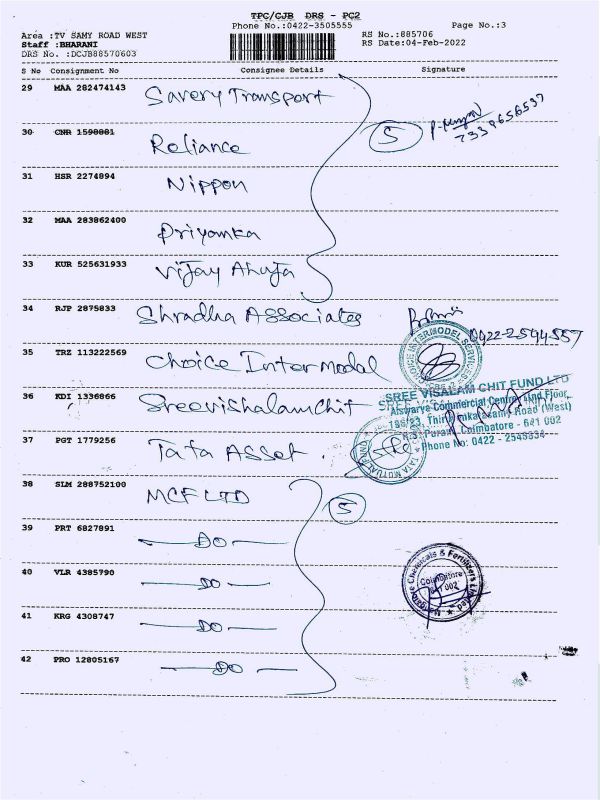 TPC/CJB DRS - PC2
Phone No.:0422-3505555
Page No.:3
Area :TV SAMY ROAD WEST
Staff :BHARANI
DRS No. :DCJB88570603
RS No.:885706
RS Date:04-Feb-2022
S No Consignment No Consignee Details Signature
29 MAA 282474143 Savery Transport
30 CNR 1590881 Reliance
5
7339656537
31 HSR 2274894 Nippon
32 MAA 283862400 Priyanka
33 KUR 525631933 Vijay Ahuja
34 RJP 2875833 Shradha Associates
0422-2544557
35 TRZ 113222569 Choice Intermodal
CHOICE INTERMODEL SERVICES
36 KDI 1336866 Sreevishalam Chit
SREE VISALAM CHIT FUND LTD
Aiswarya Commercial Centre, IInd Floor,
Road (West)
R.S. Puram, Coimbatore - 641 002
Phone No: 0422 - 2545334
37 PGT 1779256 Tata Asset.
TATA MUTUAL FUND
38 SLM 288752100 MCF LTD
5
39 PRT 6827891 —DO—
40 VLR 4385790 —DO—
Mangalore Chemicals & Fertilizers Limited
Coimbatore
641 002
41 KRG 4308747 —DO—
42 PRO 12805167 —DO—